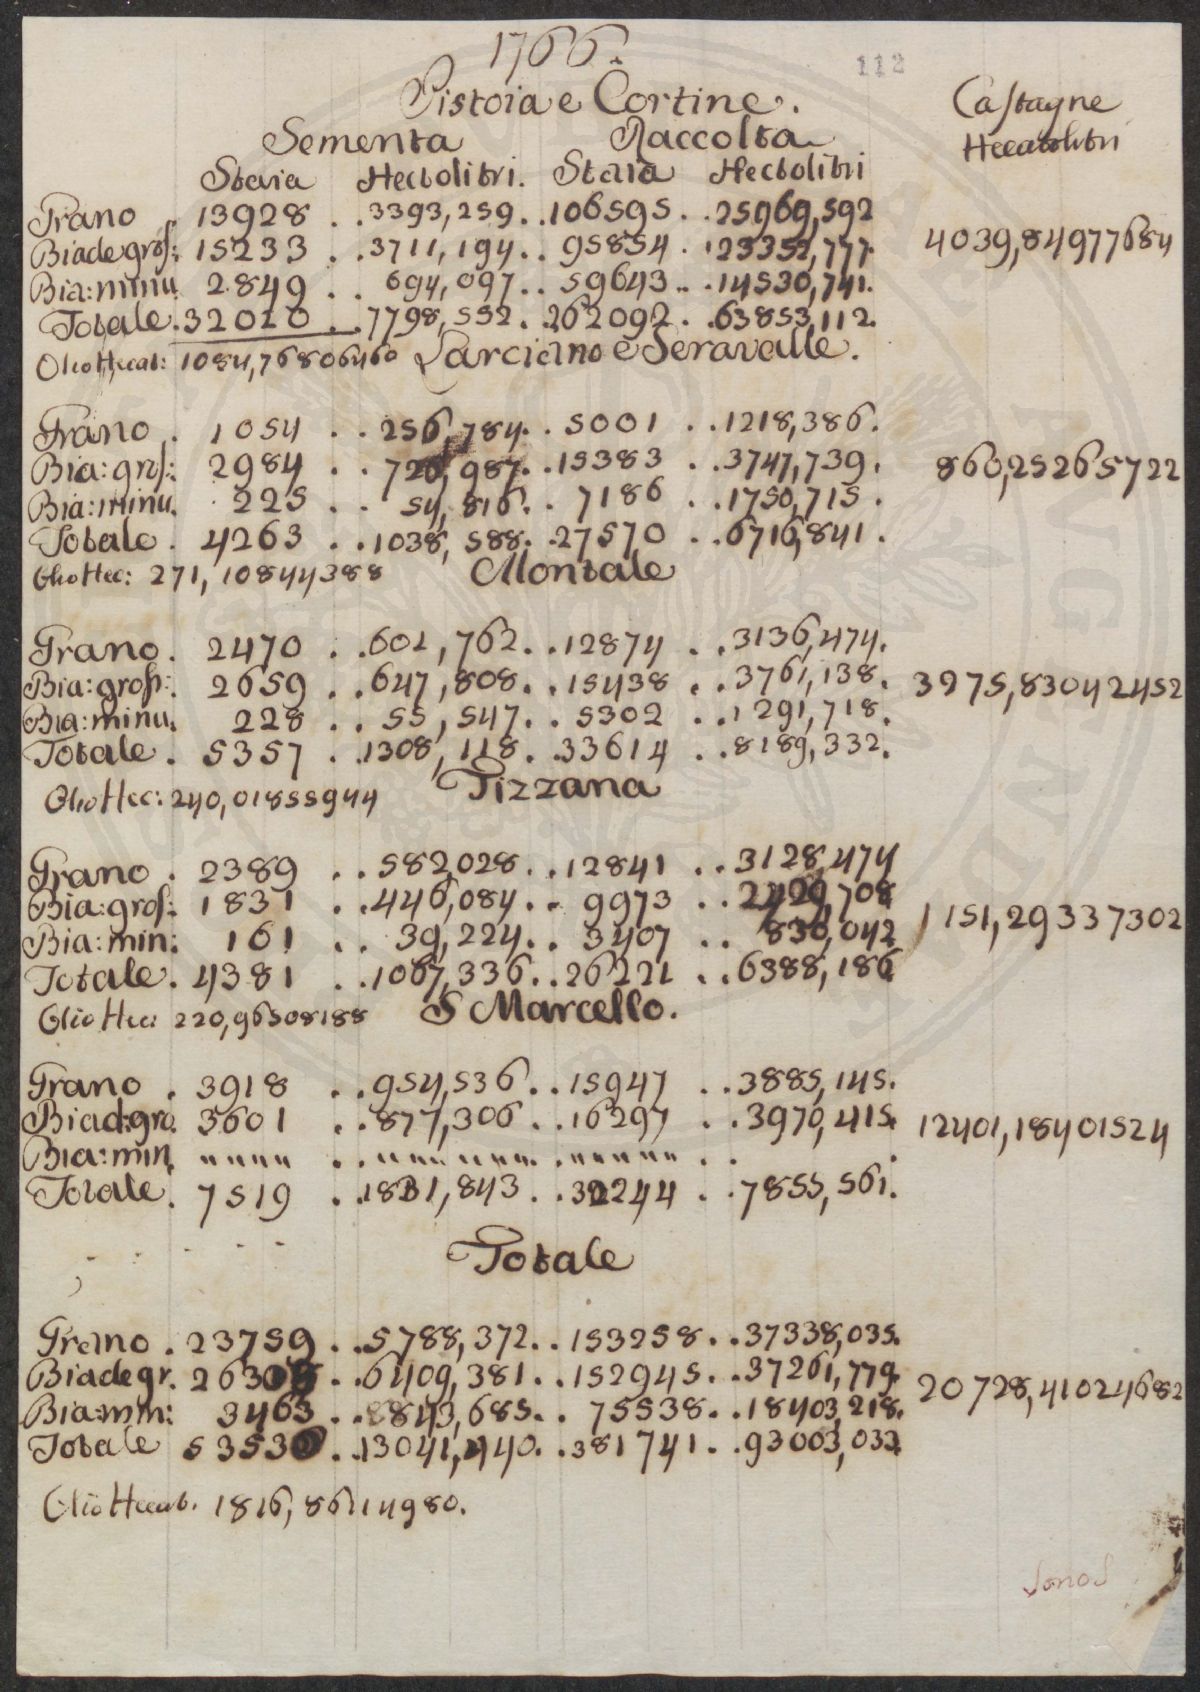 1766.
112
Pistoia e Cortine.
Castagne
Sementa Raccolta
Heccatolitri
Staia Hectolitri. Staia Hectolitri
Grano 13928 .. 3393,259 .. 106595 .. 25969,592
Biade gros: 15233 .. 3711,194 .. 95854 . 23352,777. 4039,84977684
Bia: minu 2849 .. 694,097 .. 59643 .. 14530,741.
Totale. 32010 .. 7798,552. 262092 .. 63853,112.
Olio Hecat: 1084,76806460 Larciano e Seravalle.
Grano . 1054 .. 256,784 .. 5001 .. 1218,386.
Bia: gros: 2984 .. 726,987 .. 15383 .. 3747,739. 860,25265722
Bia: minu. 225 .. 54,816 .. 7186 .. 1750,715.
Totale . 4263 .. 1038,588. 27570 .. 6716,841.
Olio Hec: 271,10844388 Montale
Grano . 2470 .. 601,762 .. 12874 .. 3136,474.
Bia: gross: 2659 .. 647,808 .. 15438 .. 3761,138. 3975,83042452
Bia: minu. 228 .. 55,547 .. 5302 .. 1291,718.
Totale . 5357 .. 1308,118 .. 33614 .. 8189,332.
Olio Hec: 240,01855944 Tizzana
Grano . 2389 .. 582,028 .. 12841 .. 3128,474
Bia: gros: 1831 .. 446,084 .. 9973 .. 2429,708 1151,29337302
Bia: min: 161 .. 39,224 .. 3407 .. 830,042
Totale . 4381 .. 1067,336 .. 26221 .. 6388,186
Olio Hec: 220,96508188 S Marcello.
Grano . 3918 .. 954,536 .. 15947 .. 3885,145.
Biad: gro. 3601 .. 877,306 .. 16297 .. 3970,415. 12401,18401524
Bia: min. " " " " .. " " " " " " " .. " " " " " .. .
Totale . 7519 .. 1831,843 .. 32244 .. 7855,561.
Totale
Grano . 23759 .. 5788,372 .. 153258 .. 37338,035.
Biade gr. 26308 .. 6409,381 .. 152945 .. 37261,779. 20728,41024682
Bia: min: 3463 .. 843,685 .. 75538 .. 18403,218.
Totale 53530 .. 13041,440 .. 381741 .. 93003,033
Olio Heccat. 1816,86114980.